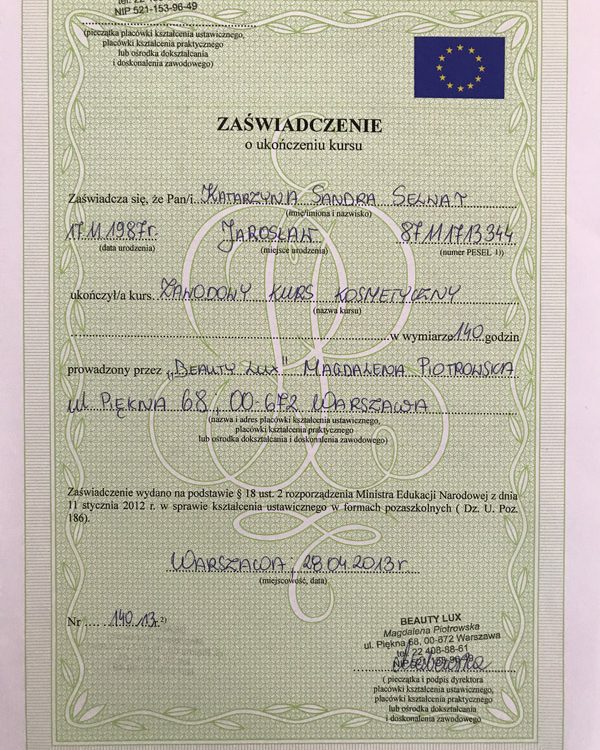 NIP 521-153-96-49
(pieczątka placówki kształcenia ustawicznego,
placówki kształcenia praktycznego
lub ośrodka dokształcania
i doskonalenia zawodowego)
ZAŚWIADCZENIE
o ukończeniu kursu
Zaświadcza się, że Pan/i. KATARZYNA SANDRA SELWAT
(imię/imiona i nazwisko)
17.11.1987r. JAROSŁAW 87111713344
(data urodzenia) (miejsce urodzenia) (numer PESEL 1))
ukończył/a kurs. ZAWODOWY KURS KOSMETYCZNY
(nazwa kursu)
w wymiarze 140 godzin
prowadzony przez „BEAUTY LUX" MAGDALENA PIOTROWSKA
ul PIĘKNA 68, 00-672 WARSZAWA
(nazwa i adres placówki kształcenia ustawicznego,
placówki kształcenia praktycznego
lub ośrodka dokształcania i doskonalenia zawodowego)
Zaświadczenie wydano na podstawie § 18 ust. 2 rozporządzenia Ministra Edukacji Narodowej z dnia
11 stycznia 2012 r. w sprawie kształcenia ustawicznego w formach pozaszkolnych ( Dz. U. Poz.
186).
WARSZAWA, 28.04.2013r.
(miejscowość, data)
Nr 140.13r. 2)
BEAUTY LUX
Magdalena Piotrowska
ul. Piękna 68, 00-672 Warszawa
tel. 22 408-88-61
NIP 521-153-96-49
( pieczątka i podpis dyrektora
placówki kształcenia ustawicznego,
placówki kształcenia praktycznego
lub ośrodka dokształcania
i doskonalenia zawodowego